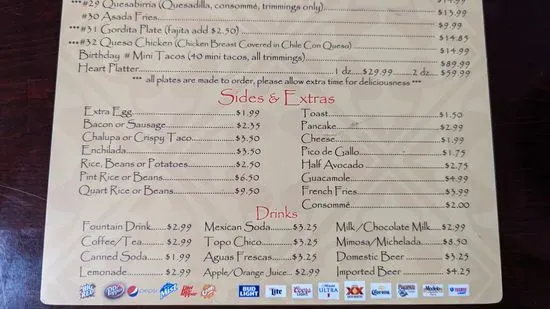 ***#29 Quesabirria (Quesadilla, consommé, trimmings only)
#30 Asada Fries $13.99
***#31 Gordita Plate (fajita add $2.50) $9.99
***#32 Queso Chicken (Chicken Breast Covered in Chile Con Queso) $14.85
Birthday # Mini Tacos (40 mini tacos, all trimmings) $14.99
$89.99
Heart Platter 1 dz $29.99 2 dz $59.99
*** all plates are made to order, please allow extra time for deliciousness ***
Sides & Extras
Extra Egg $1.99
Bacon or Sausage $2.35
Chalupa or Crispy Taco $3.50
Enchilada $3.50
Rice, Beans or Potatoes $2.50
Pint Rice or Beans $6.50
Quart Rice or Beans $9.50
Toast $1.50
Pancake $2.99
Cheese $1.99
Pico de Gallo $1.75
Half Avocado $2.75
Guacamole $4.99
French Fries $3.99
Consommé $2.00
Drinks
Fountain Drink $2.99
Coffee/Tea $2.99
Canned Soda $1.99
Lemonade $2.99
Mexican Soda $3.25
Topo Chico $3.25
Aguas Frescas $3.25
Apple/Orange Juice $2.99
Milk/Chocolate Milk $2.99
Mimosa/Michelada $8.50
Domestic Beer $3.25
Imported Beer $4.25
BIG RED
Dr Pepper
pepsi
Mist
BUD LIGHT
Lite
Coors LIGHT
ULTRA
XX
Corona
Modelo